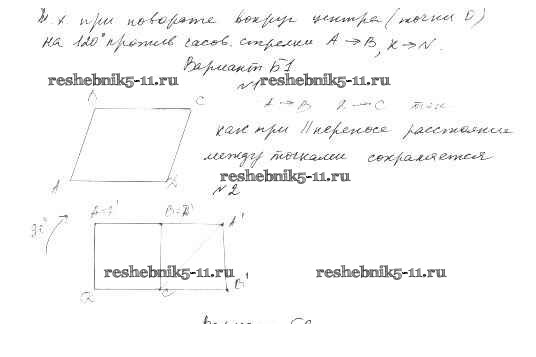 т.к при повороте вокруг центра (точки O)
на 120° против часов. стрелки A → B, K → N.
Вариант Б1
reshebnik5-11.ru
reshebnik5-11.ru
N1
A → B
→ C
так
B
C
как при || переносе расстояние
между точками сохраняется
reshebnik5-11.ru
A
N2
B=D'
A'
reshebnik5-11.ru
reshebnik5-11.ru
C
B'